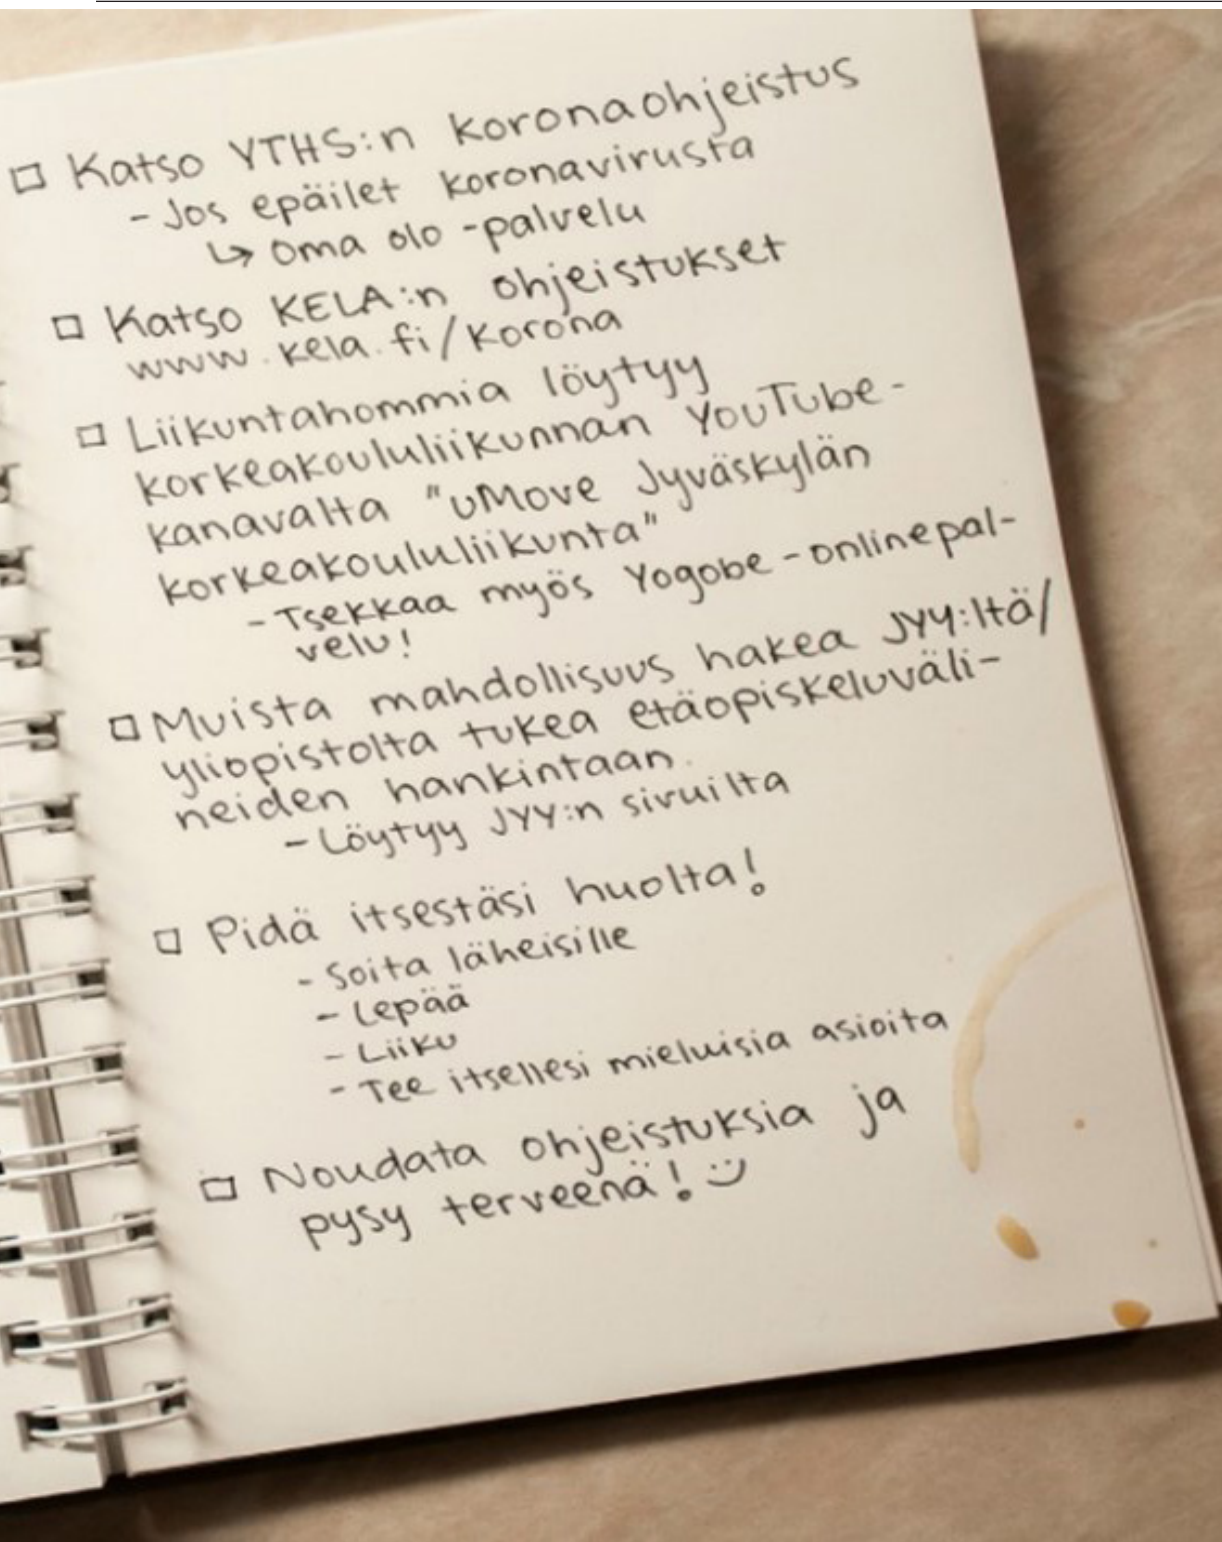 □ Katso YTHS:n koronaohjeistus
- Jos epäilet koronavirusta
↳ Oma olo -palvelu
□ Katso KELA:n ohjeistukset
www.kela.fi/korona
□ Liikuntahommia löytyy
korkeakoululiikunnan YouTube-
kanavalta "uMove Jyväskylän
korkeakoululiikunta"
- Tsekkaa myös Yogobe -onlinepal-
velu!
□ Muista mahdollisuus hakea JYY:ltä/
yliopistolta tukea etäopiskeluväli-
neiden hankintaan.
- Löytyy JYY:n sivuilta
□ Pidä itsestäsi huolta!
- Soita läheisille
- Lepää
- Liiku
- Tee itsellesi mieluisia asioita
□ Noudata ohjeistuksia ja
pysy terveenä! :)